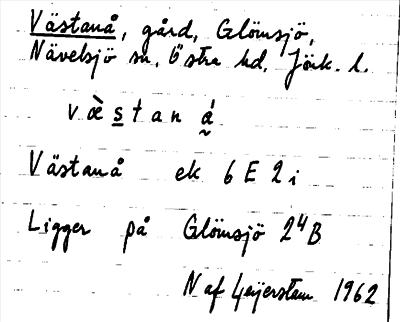 Västanå, gård, Glömsjö,
Nävelsjö sn, Östra hd, Jönk. l.
v æ̀ s t a n á̰
Västanå ek 6 E 2 i
Ligger på Glömsjö 2⁴B
N af Geijerstam 1962